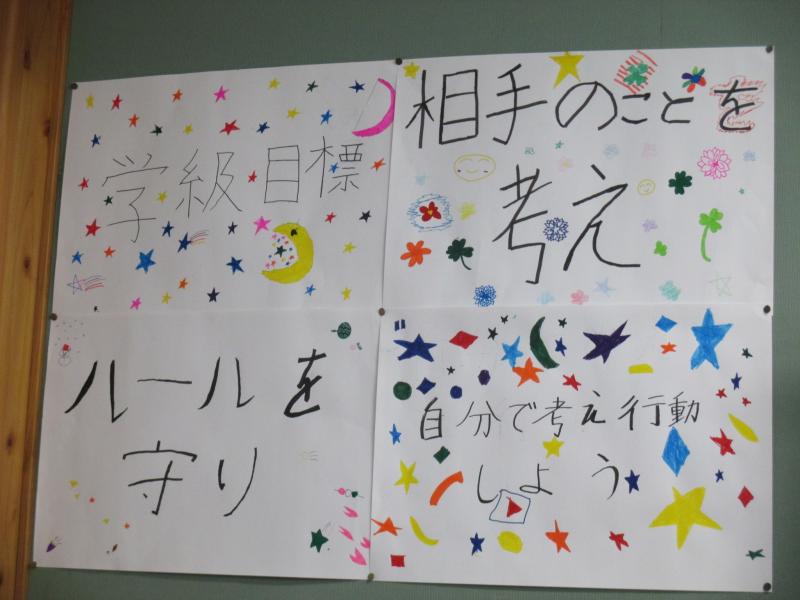 学級目標
相手のことを
考え
ルールを
守り
自分で考え行動
しよう